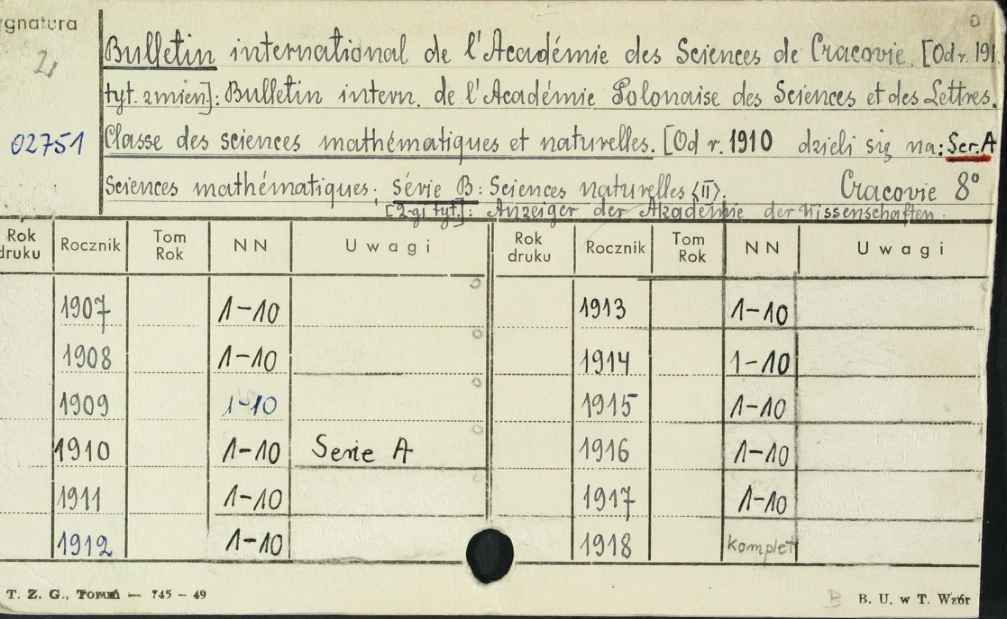 gnatura
2,
02751
Bulletin international de l'Académie des Sciences de Cracovie. [Od r. 191
tyt. zmien]: Bulletin intern. de l'Académie Polonaise des Sciences et des Lettres.
Classe des sciences mathématiques et naturelles. [Od r. 1910 dzieli się na: Ser. A
Sciences mathématiques; série B: Sciences naturelles <II>. Cracovie 8°
[2-gi tyt.]: Anzeiger der Akademie der Wissenschaften.
Rok druku Rocznik Tom Rok NN Uwagi Rok druku Rocznik Tom Rok NN Uwagi
1907 1-10 1913 1-10
1908 1-10 1914 1-10
1909 1-10 1915 1-10
1910 1-10 Serie A 1916 1-10
1911 1-10 1917 1-10
1912 1-10 1918 komplet
T. Z. G., Toruń — 745 - 49 B B. U. w T. Wzór